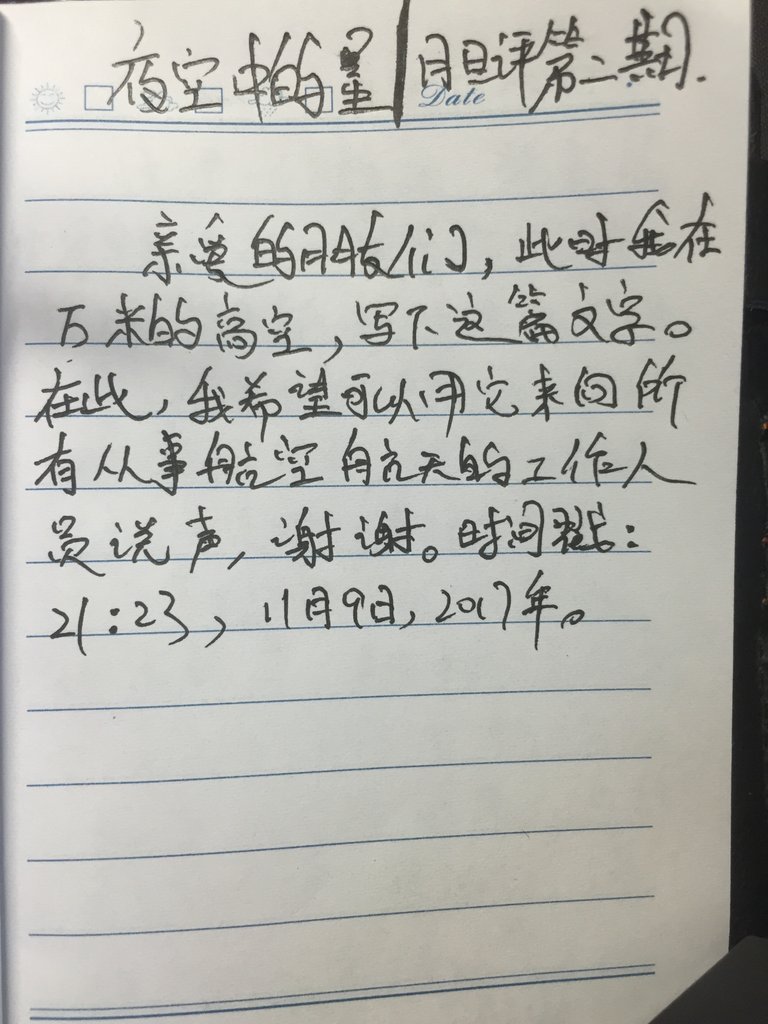 夜空中的星|月旦评第二期.
Date
亲爱的朋友们，此时我在
万米的高空，写下这篇文字。
在此，我希望可以用它来向所
有从事航空航天的工作人
员说声，谢谢。时间戳：
21:23，11月9日，2017年。